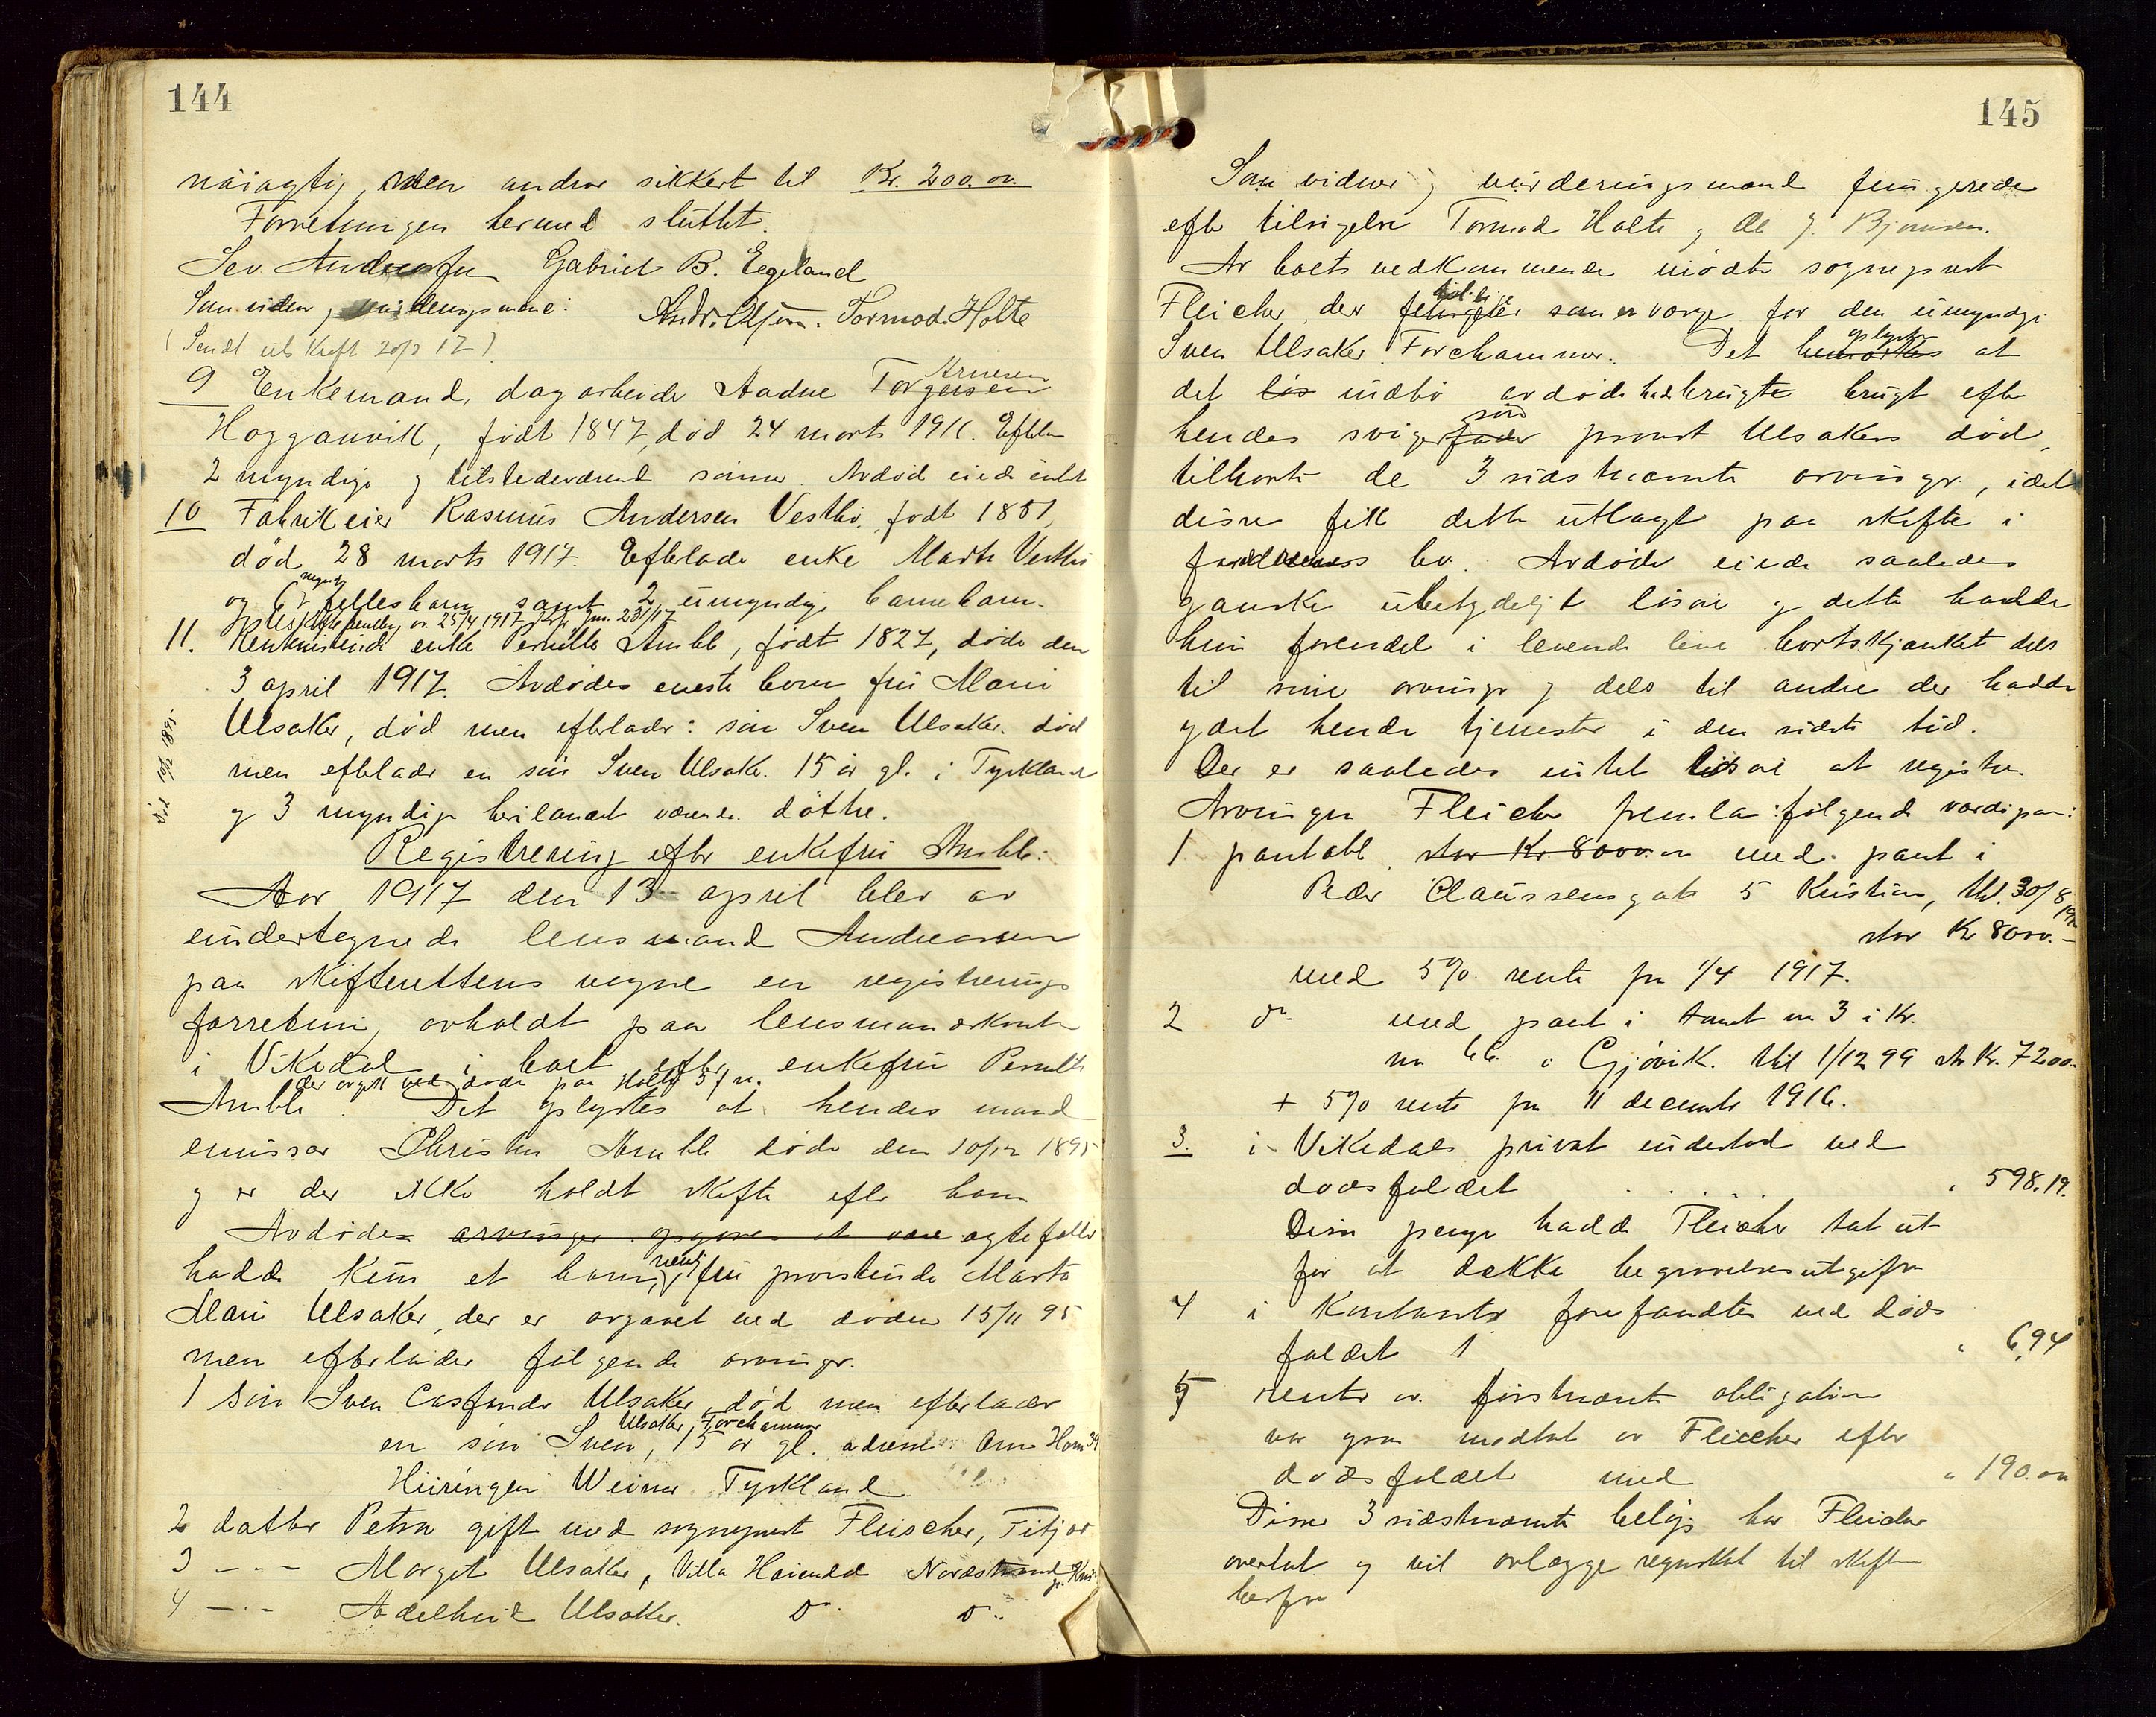 144
nöiagtig, men andrar sikkert til Kr. 200.00.
Forretningen hermed sluttet.
Sev Andreasen Gabriel B. Egeland
Som vidner og vurderingsmænd: Andr. Tormod Holte
(Sendt
9 Enkemand, dagarbeider Aadne Torgersen Arnesen
Hogganvik, født 1847, død 24 marts 1916. Efterlater
2 myndige og tilstedeværende sönner. Avdöd eiede intet
10 Fabrikeier Rasmus Andersen Vestbö, født 1851,
död 28 marts 1917. Efterlader enke Marta Vestbö
og 6 myndig fellesbarn samt 2 umyndige barnebarn.
25/4 1917
11. enke Pernille Amble, født 1827, döde den
3 april 1917. Avdödes eneste barn fru Marie
Ulsaker, död men efterlader: sön Sven Ulsaker död
men efterlader en sön Sven Ulsaker. 15 år gl. i Tyskland
og 3 myndige döttre.
Registrering efter enkefru Amble:
Aar 1917 den 13 april blev av
undertegnede lensmand Andreassen
paa skifterettens vegne en registrerings
forretning avholdt paa lensmandskontor
i Vikedal i boet efter enkefru Pernille
der avgik ved döde paa Holte 3/4 n.
Amble. Det oplystes at hendes mand
emissær Christen Amble döde den 10/12 1895
og er der ikke holdt skifte efter ham
Avdöde arvinger opgaves at være egtefeller
hadde kun et barn, nemlig fru provstinde Marta
Marie Ulsaker, der er avgaaet ved döden 15/11 95
men efterlader fölgende arvinger.
1 Sön Sven Ulsaker, död men efterlader
en sön Sven Ulsaker Forchammer, 15 år gl. adresse Am Horn 34
Weimar Tyskland
2 datter Petra gift med sogneprest Fleischer, Titjær
3 -.- Margit Ulsaker, Villa Nordstrand
4 -.- Adelheid Ulsaker. Do Do
145
Som vidner og vurderingsmænd fungerede
efter tilsigelse Tormod Holte og Ole J. Bjørnsen.
Av boets vedkommende mödte sogneprest
Fleicher, der tillike som er værge for den umyndige
Sven Ulsaker Forchammer. Det bemerkes oplystes at
det lös indbo avdöde hadde brugte brugt efter
hendes svigerfader sön provst Ulsakers död,
tilhörte de 3 sidstnævnte arvinger, idet
disse fik dette utlagt paa skifte i
forældrenes bo. Avdöde eiede saaledes
ganske ubetydeligt lösöre og dette hadde
hun forendel i levende live bortskjænket dels
til sine arvinger og dels til andre der hadde
ydet hende tjenester i den sidste tid.
Der er saaledes intet lösöre at registrere.
Arvingen Fleicher fremla fölgende værdipap:
1 pantobl. stor Kr 8000.00 med pant i
Peder Claussensgate 5 Kristian, tkl. 30/8
stor Kr 8000.-
med 5% rente fra 1/4 1917.
2 do med pant i tomt nr 3 i Kv.
nr 66 i Gjövik. tkl 1/12 99 stor Kr. 7200.-
+ 5% rente fra 11 december 1916.
3. i Vikedals privat ved
dödsfaldet . . . . . " 598.19.
Disse penge hadde Fleicher tat ut
for at dække begravelsesutgifter
4 i Kontanter forefandtes ved döds
faldet 1 " 6,94
5 renter av förstnævnte obligation
var mottat av Fleicher efter
dödsfaldet med " 190.00
Disse 3 sidstnævnte belöp har Fleicher
overtat og vil avlægge regnskab til skifteretten
herfor